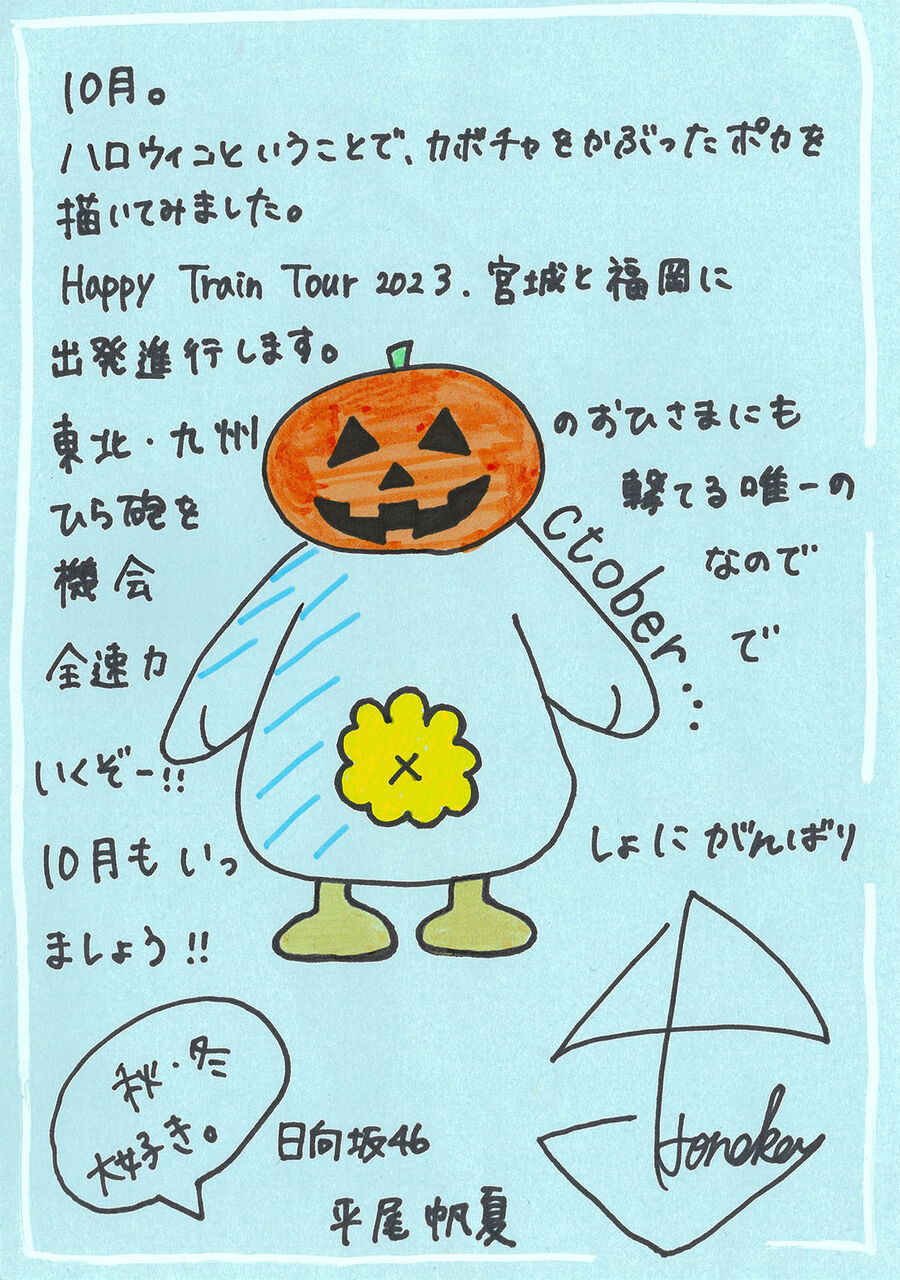 10月。
ハロウィンということで、カボチャをかぶったポカを
描いてみました。
Happy Train Tour 2023. 宮城と福岡に
出発進行します。
東北・九州のおひさまにも
ひら砲を撃てる唯一の
機会なので
全速力で
いくぞー!!
10月もいっしょにがんばり
ましょう!!
ctober...
秋・冬
大好き。
日向坂46
平尾帆夏